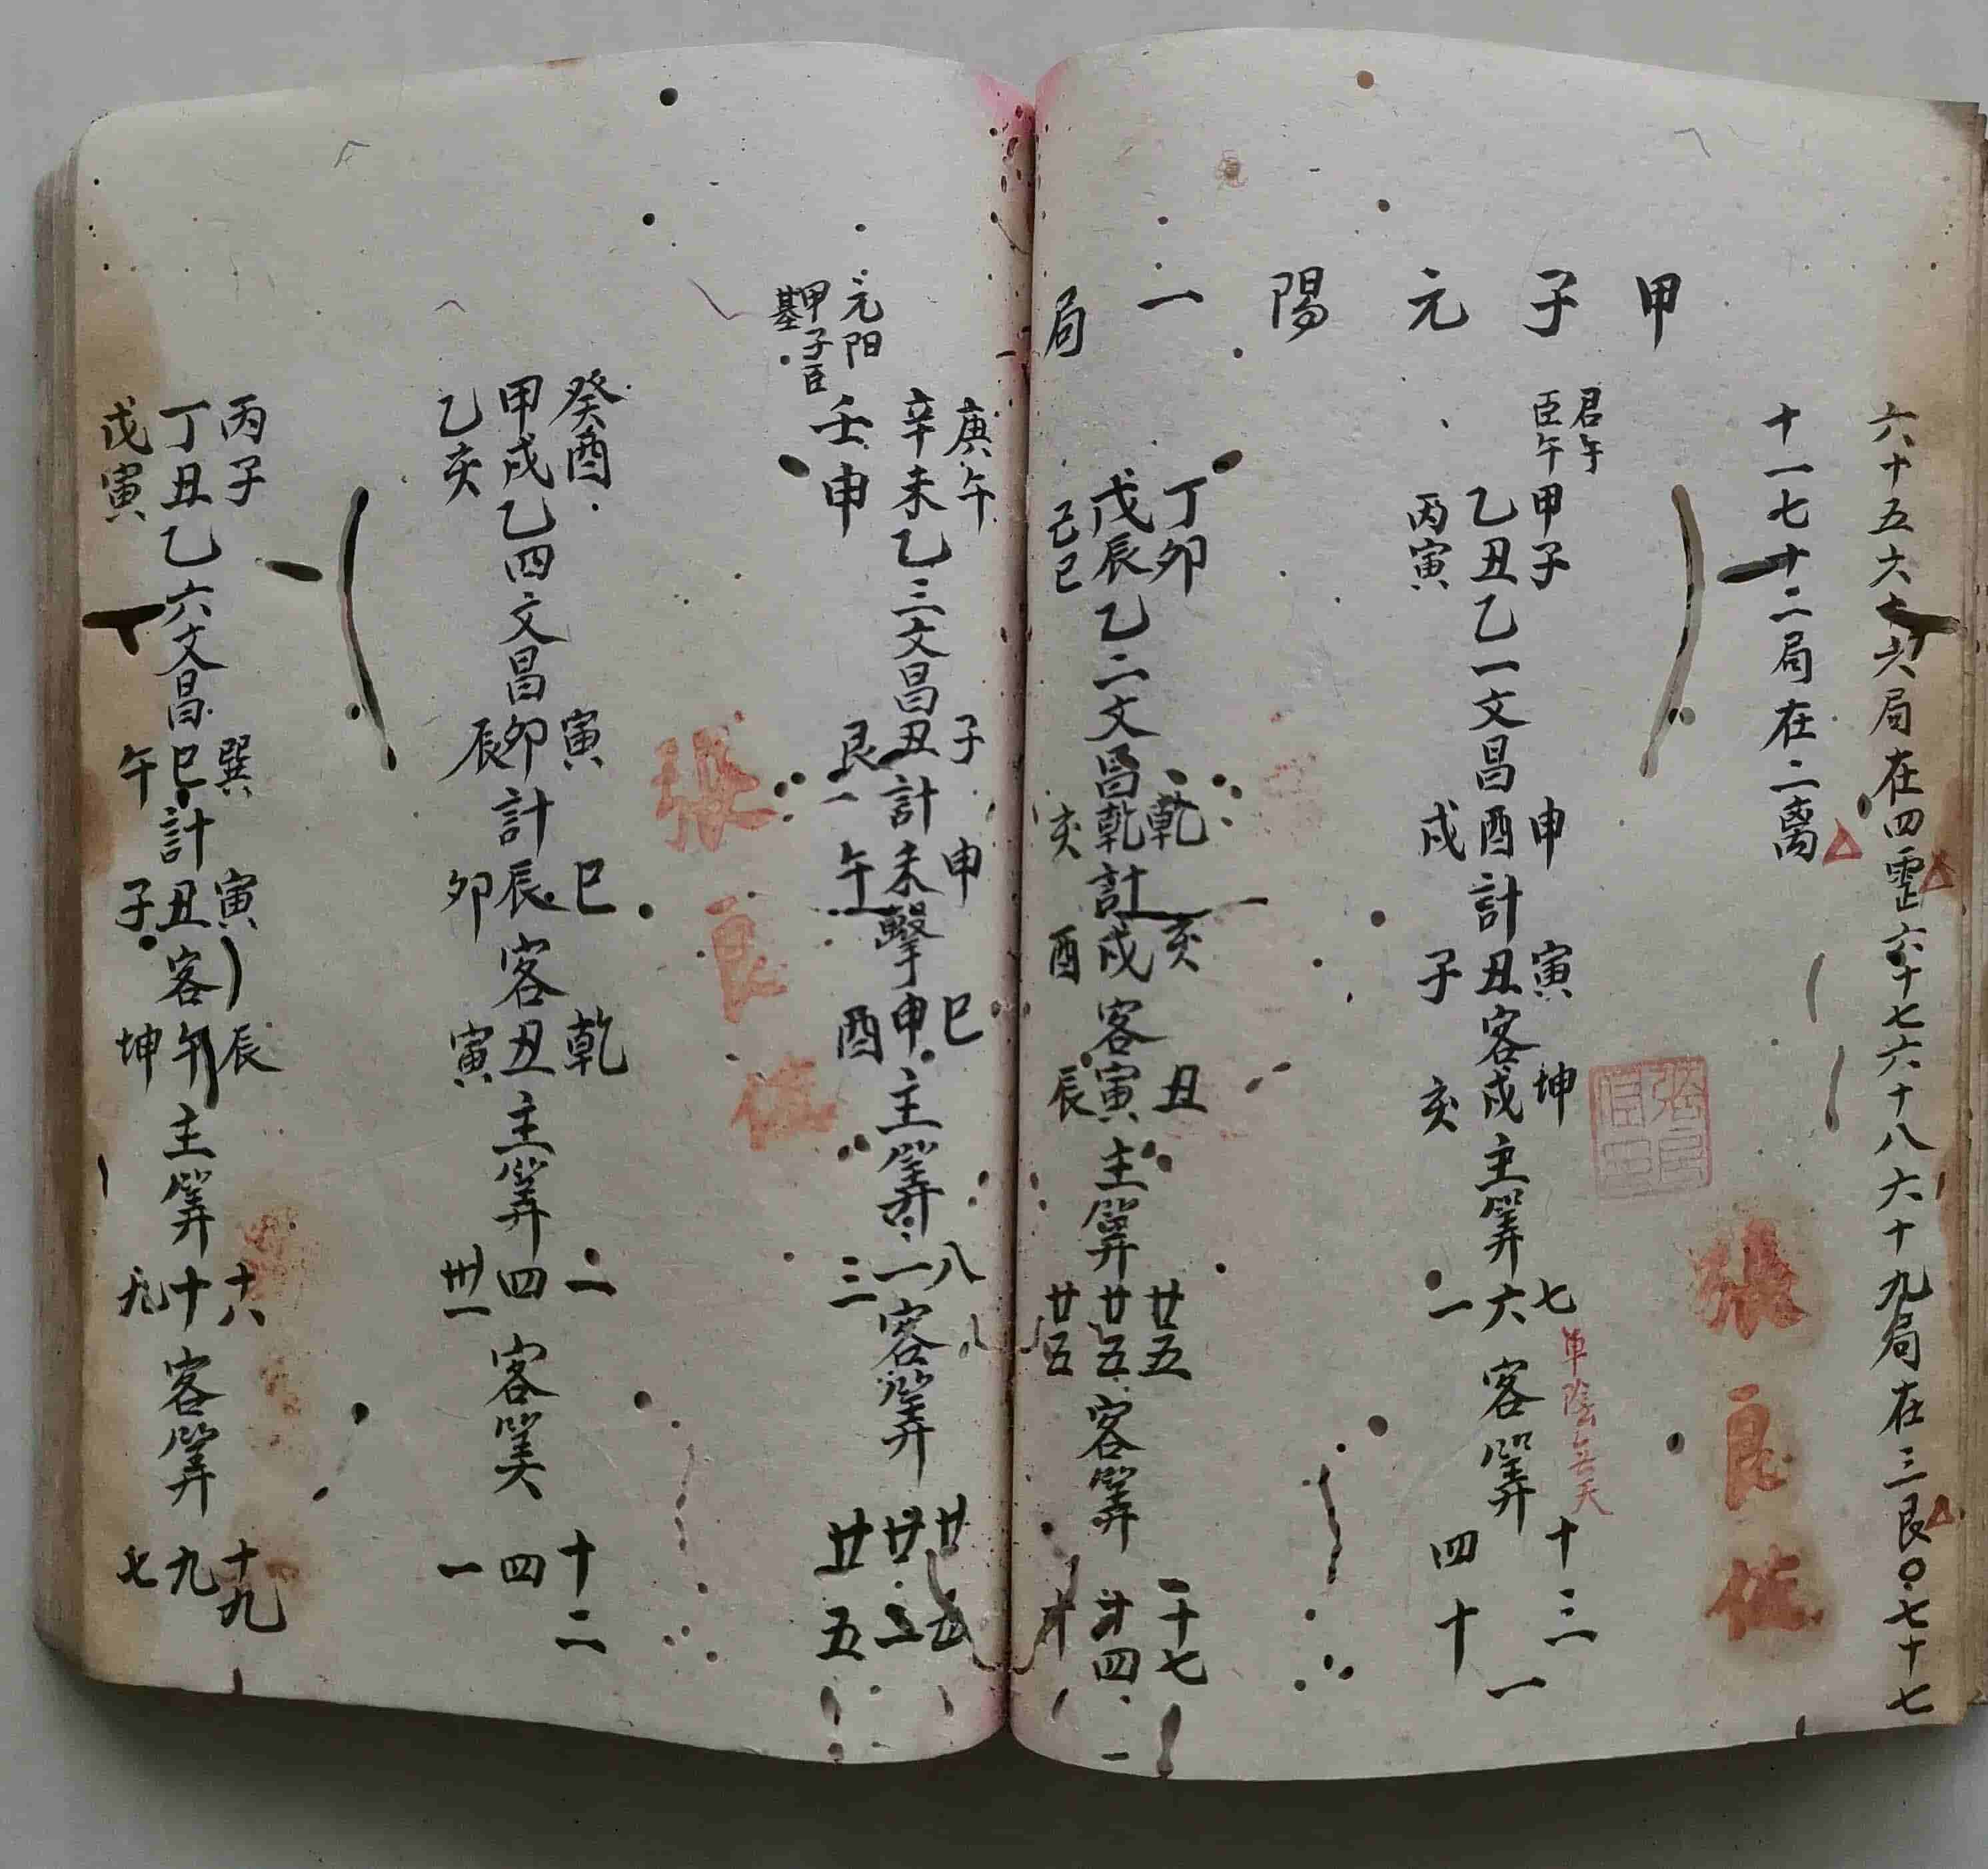 六十五六十六局在四震六十七六十八六十九局在三艮〇七十七
十一七十二局在二离
甲子元陽一局
君午
臣午
甲子
乙丑乙一文昌酉計丑客戌主筭六客筭一
丙寅
申
戌
寅
子
坤
亥
七
一
單陰
十三
四十
丁卯
戊辰乙二文昌乾計戌客寅主筭廿五客筭廿四
己巳
乾
亥
亥
酉
丑
辰
廿五
廿五
二十七
庚午
辛未乙三文昌丑計未擊申主筭一客筭廿二
元阳
甲子臣
基
壬申
子
艮
申
午
巳
酉
八
三
廿五
廿五
癸酉
甲戌乙四文昌卯計辰客丑主筭四客筭四
乙亥
寅
辰
巳
卯
乾
寅
二
卅一
十二
一
張良佐
張良佐
丙子
丁丑乙六文昌巳計丑客午主筭十客筭九
戊寅
巽
午
寅
子
辰
坤
十八
九
十九
七